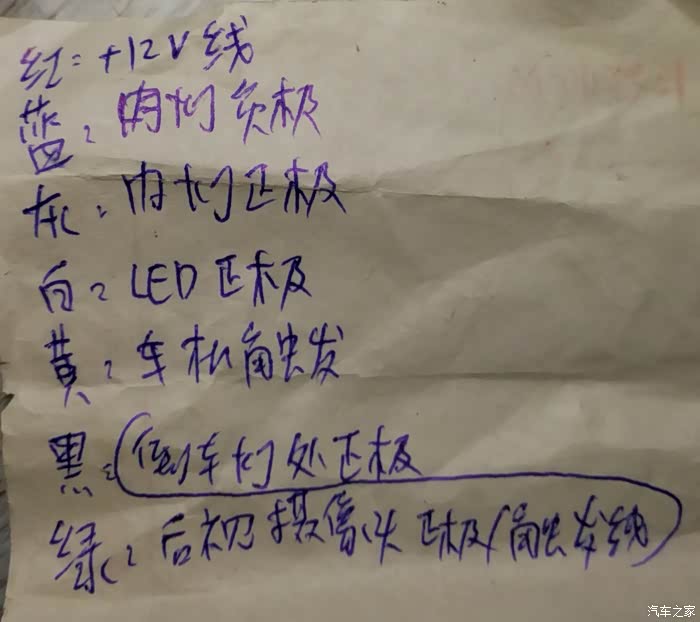 红：+12V线
蓝：内灯负极
灰：内灯正极
白：LED正极
黄：车机触发
黑：倒车灯处正极
绿：后视摄像头正极/触发线
汽车之家